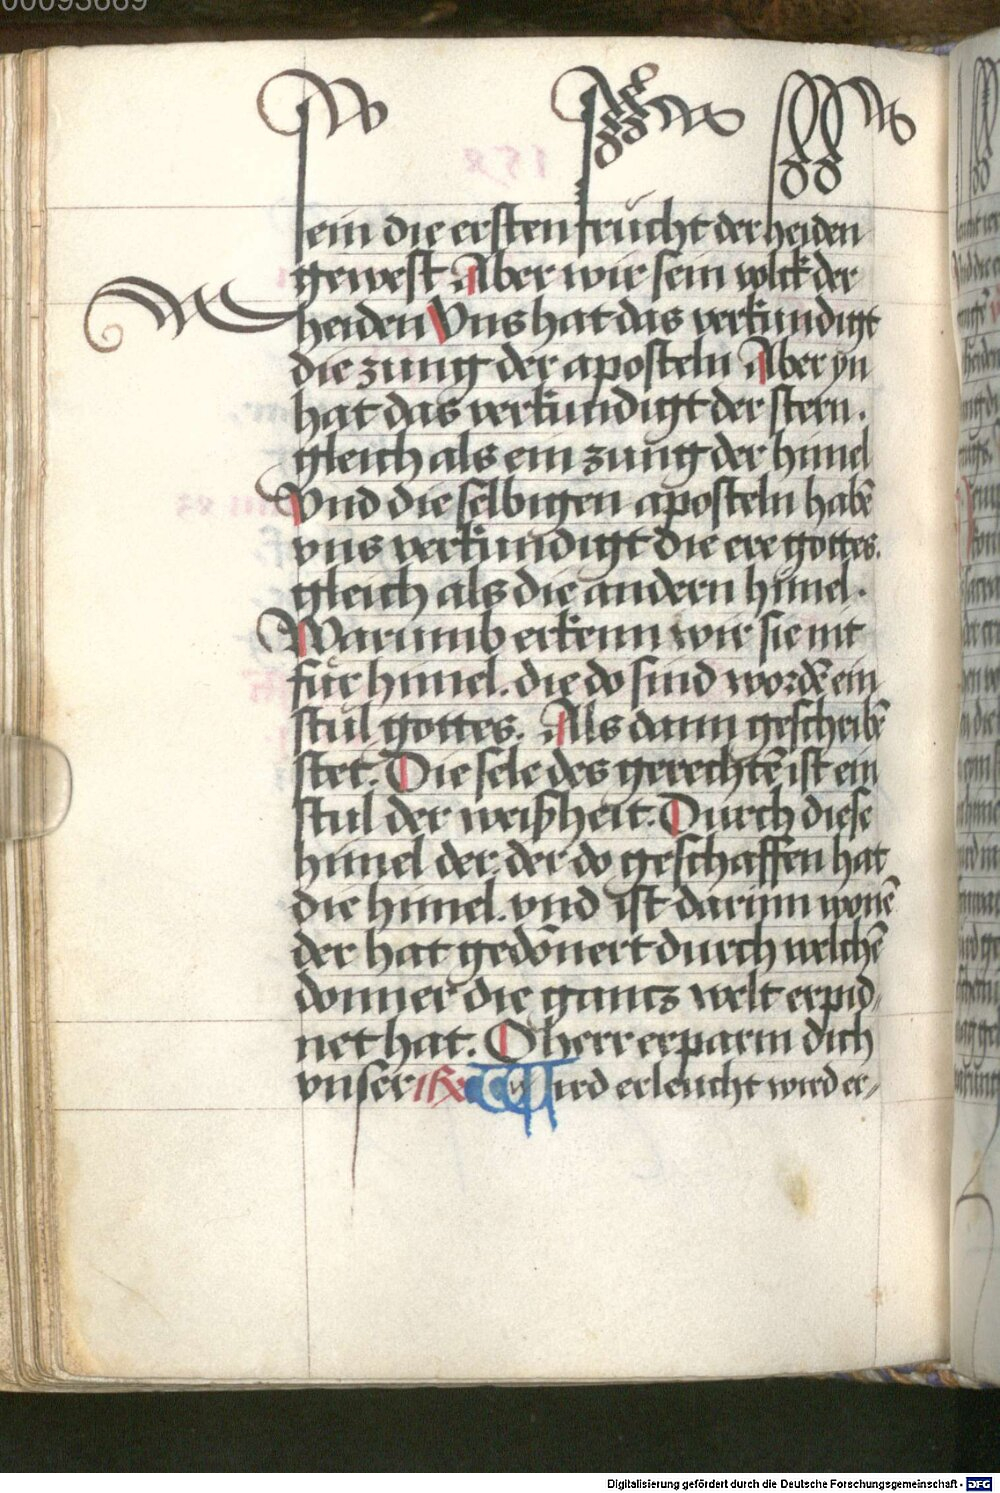 00093669
sein die ersten frucht der heiden
gewest. Aber wir sein volck der
heiden Vns hat das verkundigt
die zung der aposteln Aber yn
hat das verkundigt der stern.
gleich als ein zung der himel
Vnd die selbigen aposteln habē
vns verkundigt die ere gottes.
gleich als die andern himel.
Warumb erkenn wir sie nit
für himel. die do sind wordē ein
stul gottes. Als dann geschribē
stet. Die sele des gerechtē ist ein
stul der weißheit. Durch diese
himel der. der do geschaffen hat
die himel. vnd ist darinn wonē
der hat gedōnert durch welchē
donner die gantz welt erpid/
net hat. O herr erparm dich
vnser wird erleucht wird er/
Digitalisierung gefördert durch die Deutsche Forschungsgemeinschaft - DFG